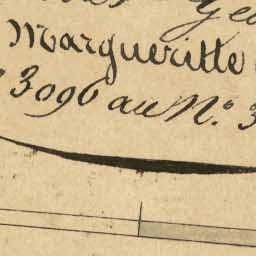 Margueritte
3096 au N.º 3